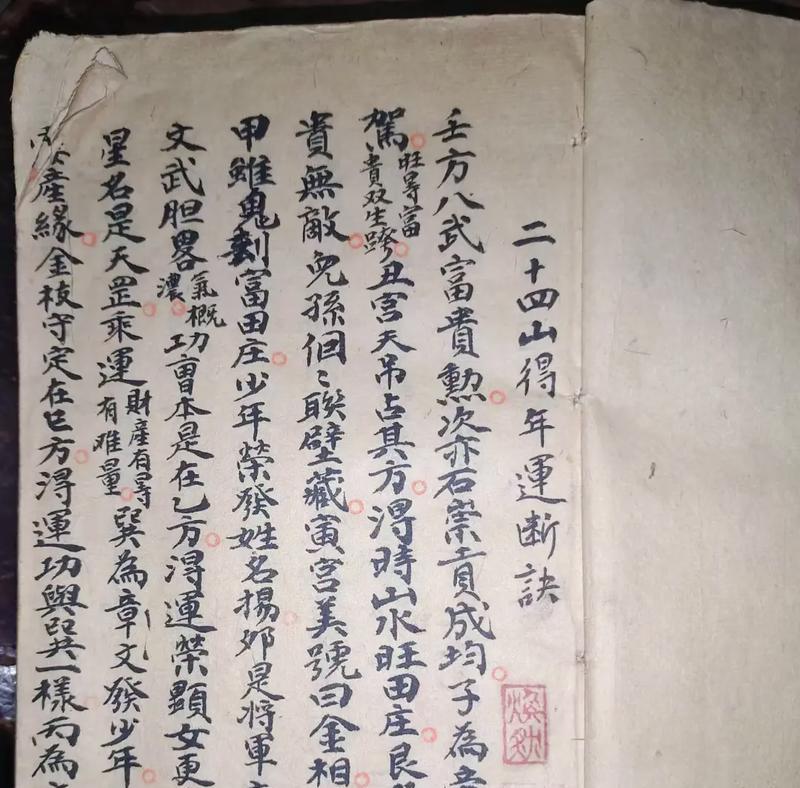 二十四山得年運断訣
壬方八武富貴勲次亦石崇貢成均子為
駕旺㝵富貴双生跨丑宫天吊占其方淂時山水旺田庄艮
貴無敵兒孫個〻聯壁藏寅宫美號曰金相
甲雖鬼劉富田庄少年榮發姓名揚卯是将軍
文武胆畧氣概濃功曹本是在乙方淂運榮顕女更
星名是天罡乘運財產有㝵有难量巽為章文發少年
產緣金枝守定在巳方淂運功與共一樣丙為